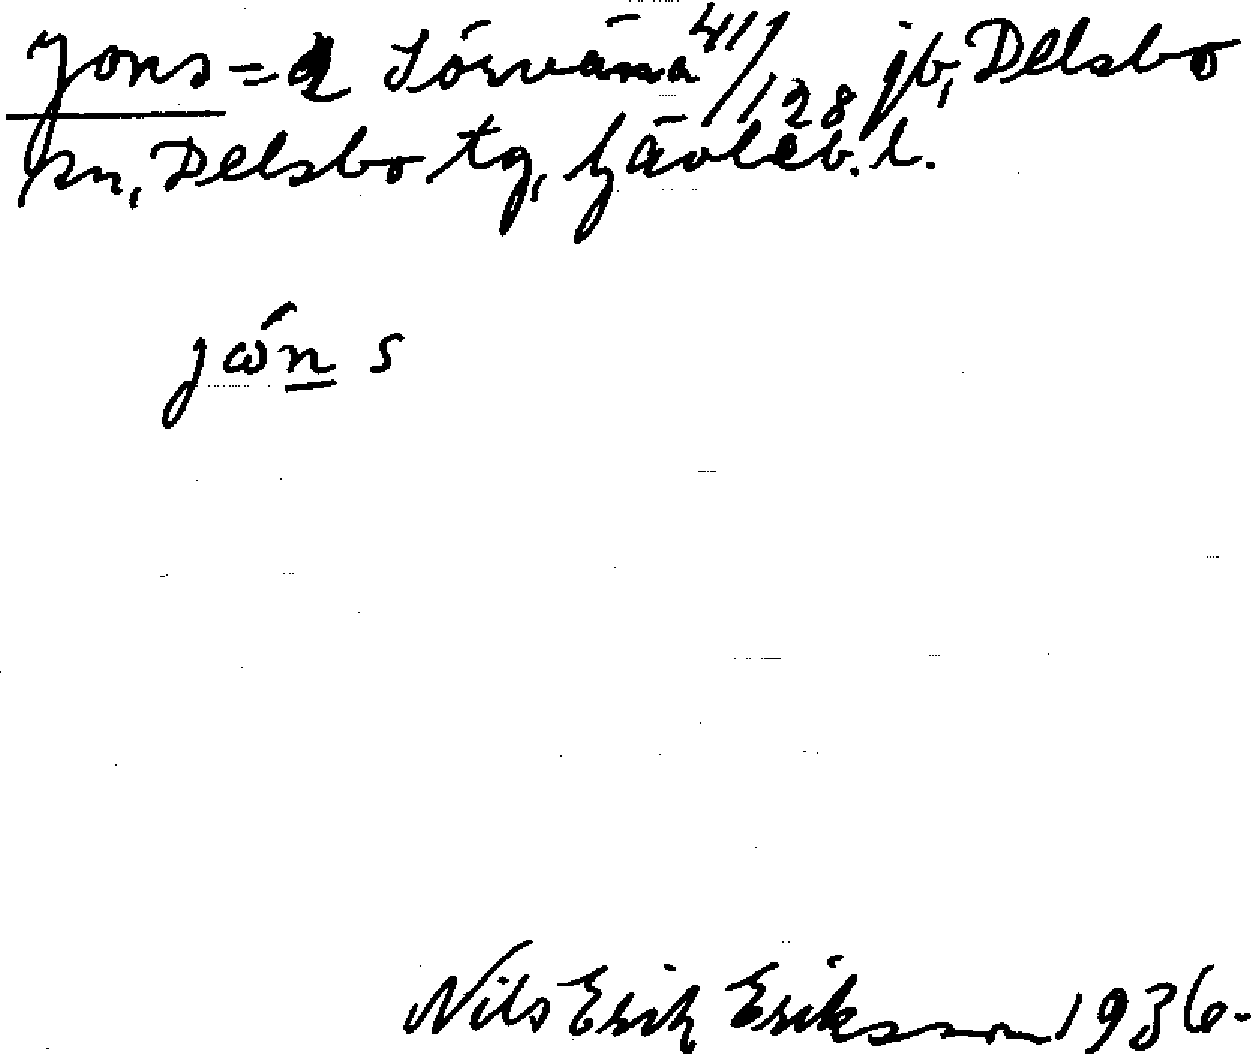 Jons = 2 Sörväna 41/128 jb, Delsbo
sn, Delsbo tg, Gävleb. l.
jωń s
Nils Erik Eriksson 1936.